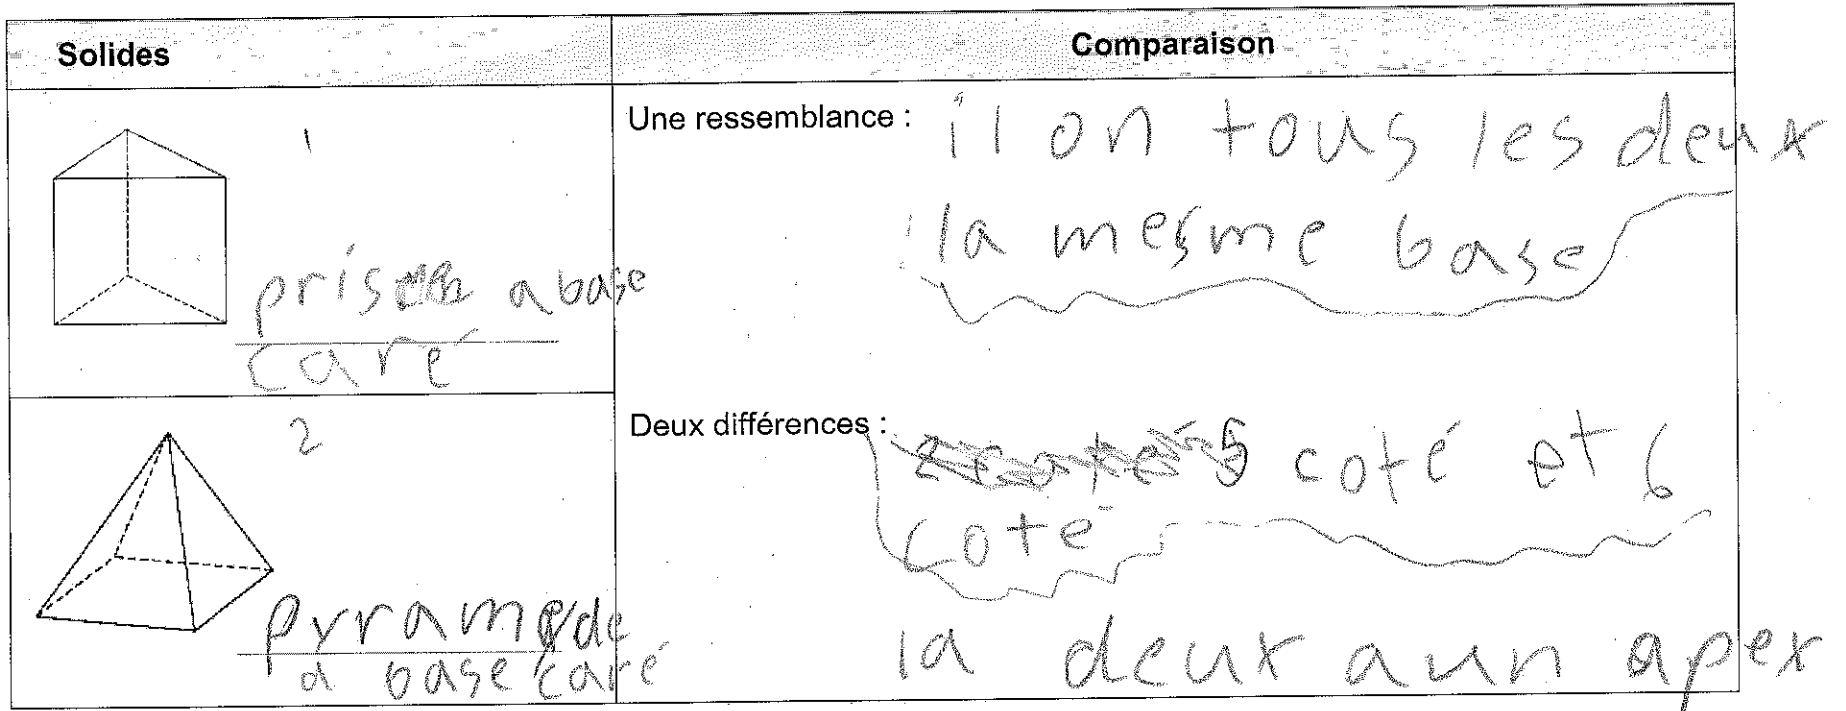 Solides
Comparaison
1
prisem a base
caré
Une ressemblance : il on tous les deux
la mesme base
2
pyramide
a base caré
Deux différences : 5 coté et 6
coté
la deux a un apex